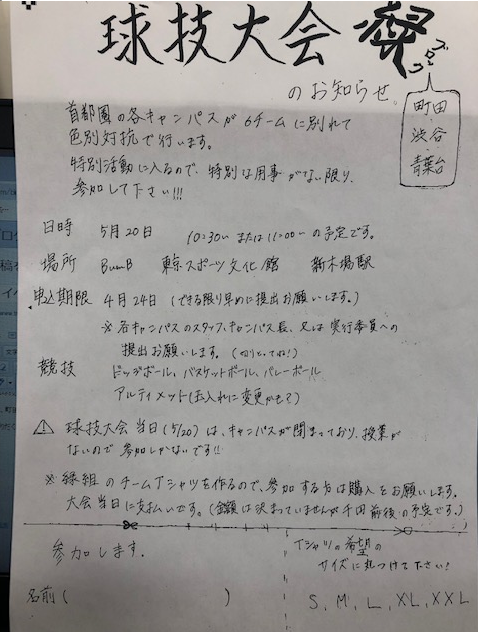 球技大会
ブロック
町田
渋谷
青葉台
のお知らせ。
首都圏の各キャンパスが6チームに別れて
色別対抗で行います。
特別活動に入るので、特別な用事がない限り、
参加して下さい!!!
日時 5月20日 10:30〜 または 11:00〜の予定です。
場所 BumB 東京スポーツ文化館 新木場駅
申込期限 4月24日 (できる限り早めに提出お願いします。)
※各キャンパスのスタッフ、キャンパス長、又は実行委員への
提出お願いします。(切りとってね!)
競技 ドッジボール、バスケットボール、バレーボール
アルティメット(玉入れに変更かも?)
⚠ 球技大会当日(5/20)は、キャンパスが閉まっており、授業が
ないので参加しかないです!!
※緑組のチームTシャツを作るので、参加する方は購入をお願いします。
大会当日に支払いです。(金額は決まっていませんが千円前後の予定です。)
参加します。
Tシャツの希望の
サイズに丸つけて下さい!
名前( )
S, M, L, XL, XXL